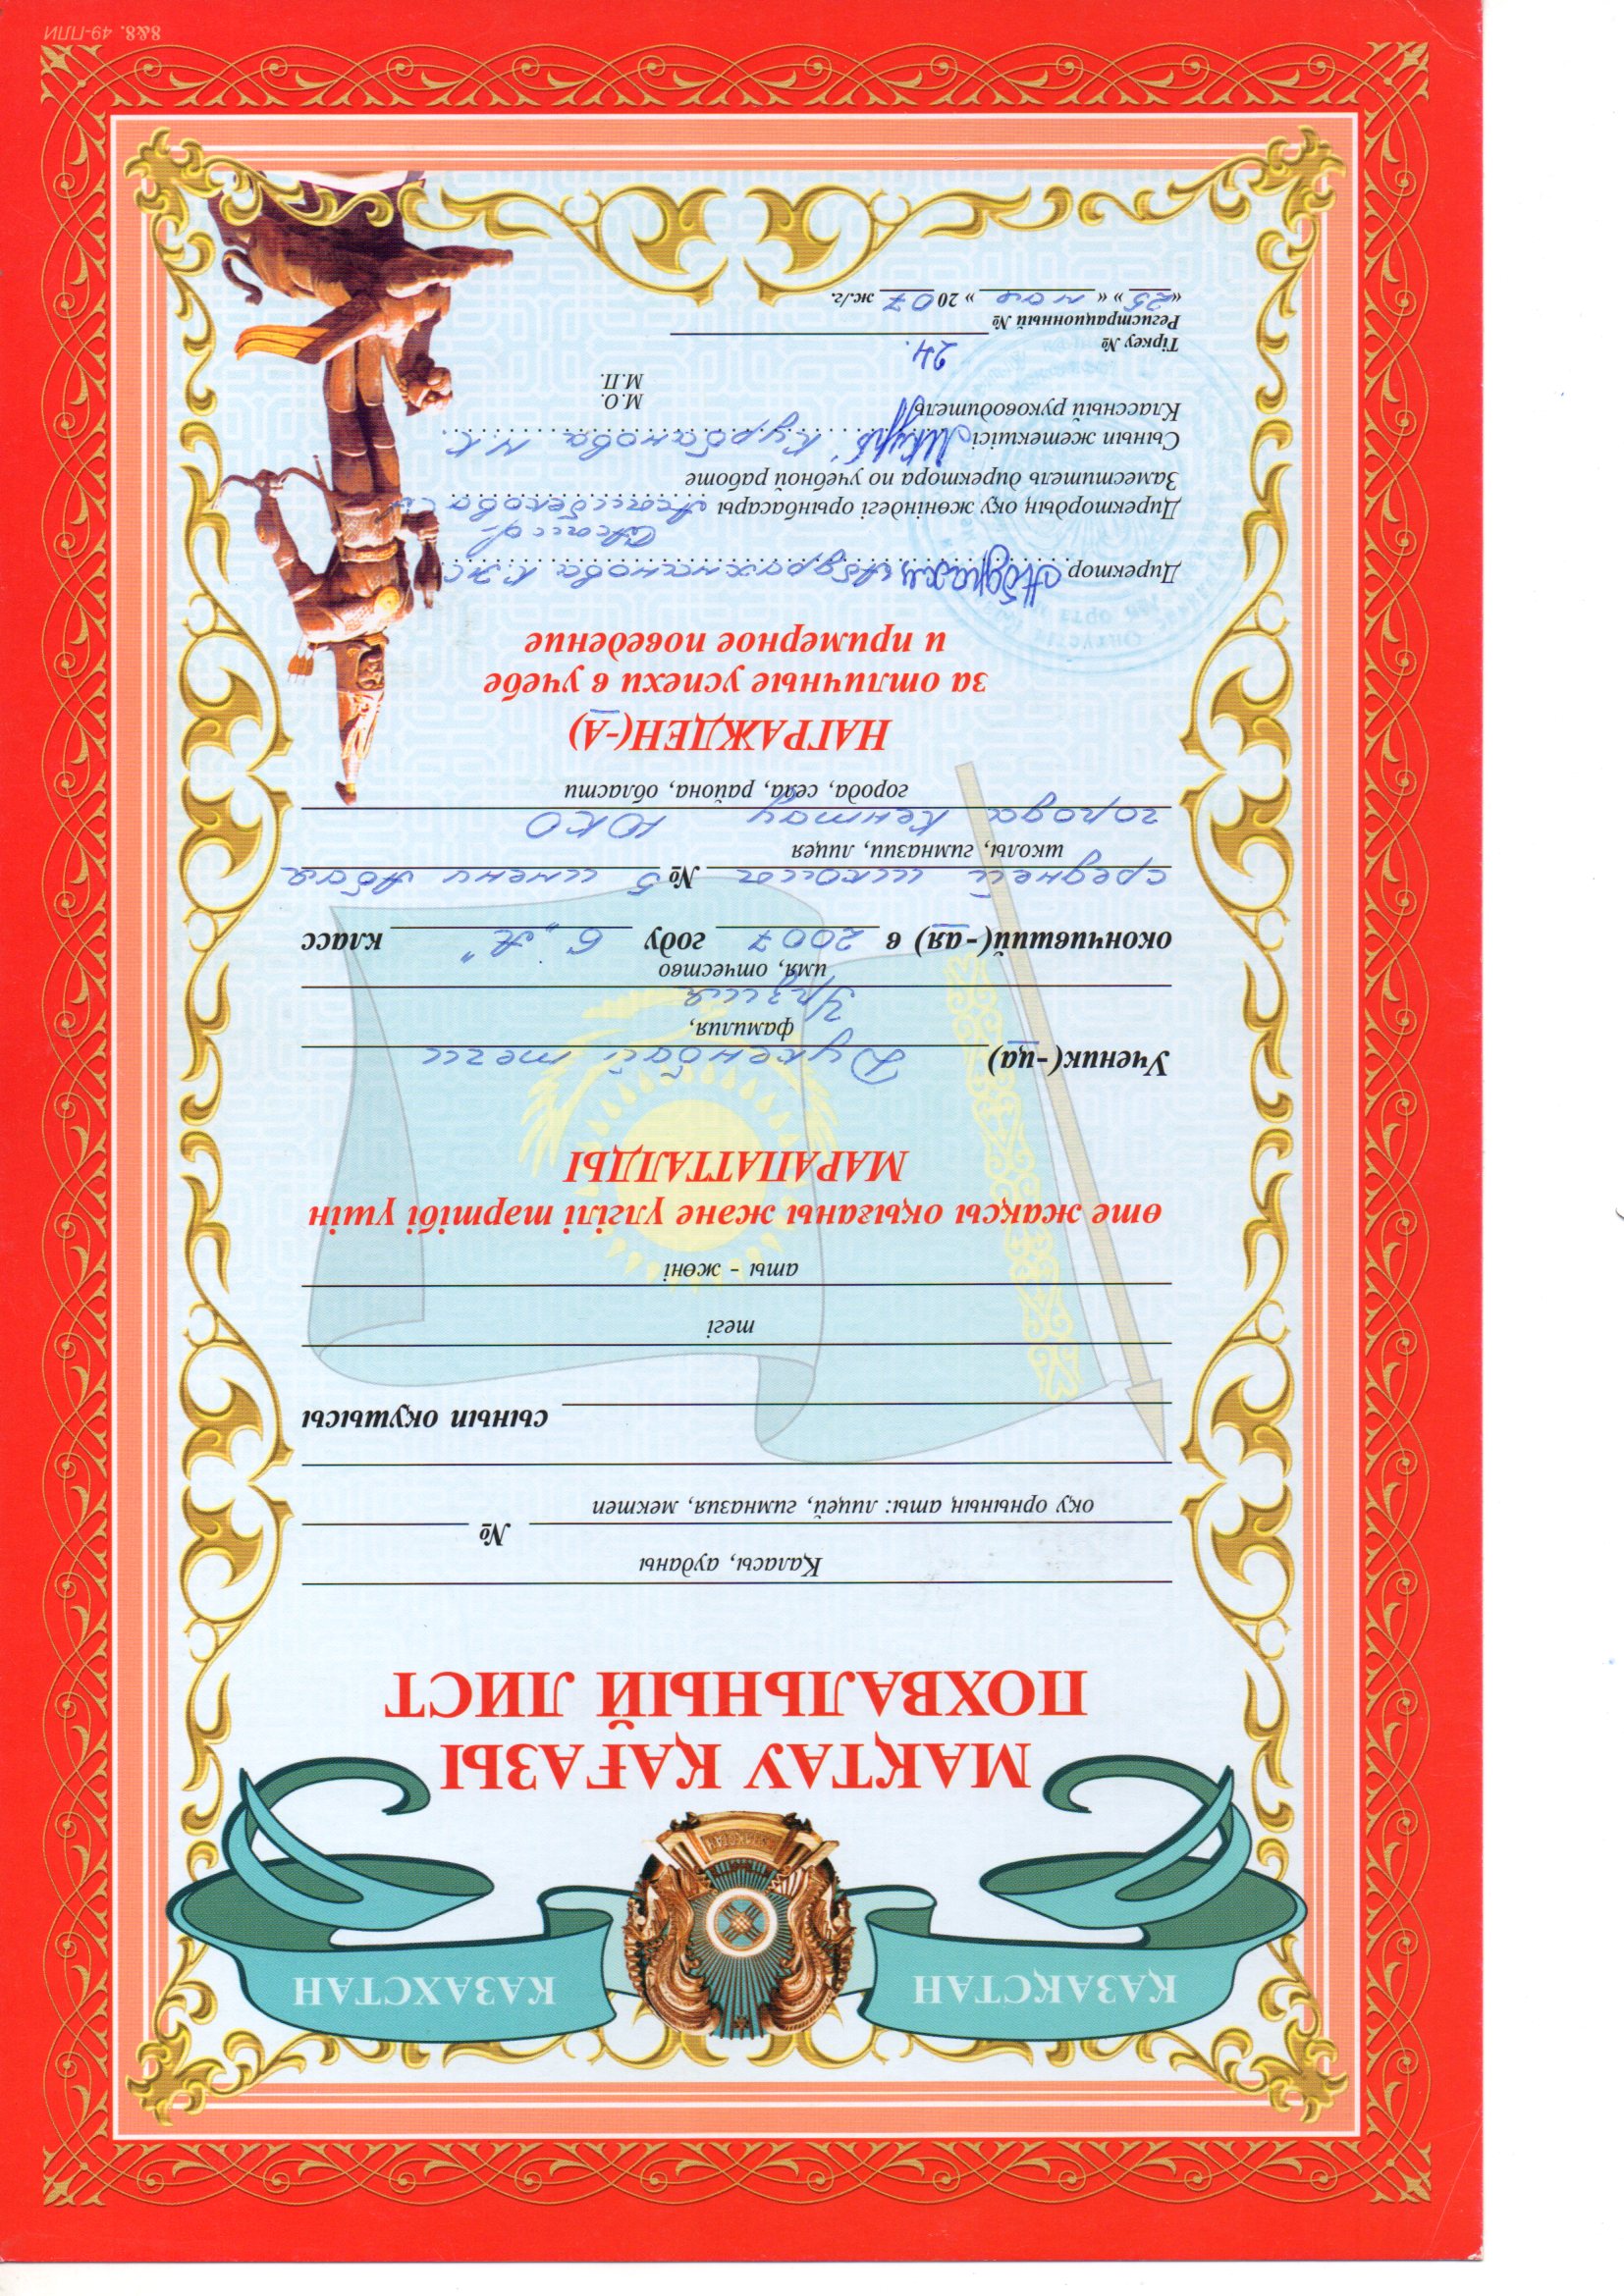 ҚАЗАҚСТАН КАЗАХСТАН
МАҚТАУ ҚАҒАЗЫ
ПОХВАЛЬНЫЙ ЛИСТ
Қаласы, ауданы
№
оқу орнының аты: лицей, гимназия, мектеп
сынып оқушысы
тегі
аты - жөні
өте жақсы оқығаны және үлгілі тәртібі үшін
МАРАПАТТАЛДЫ
Ученик(-ца) Дукенбай теги
фамилия,
имя, отчество
окончивший(-ая) в 2007 году 6 "А" класс
средней школы № 5 имени Абая
школы, гимназии, лицея
города Кентау ЮКО
города, села, района, области
НАГРАЖДЕН(-А)
за отличные успехи в учебе
и примерное поведение
Директор Абдрахманова К.Ж.
Директордың оқу жөніндегі орынбасары
Заместитель директора по учебной работе
Сынып жетекшісі Курбанова М.К.
Классный руководитель
М.О.
М.П.
Тіркеу № 24.
Регистрационный №
«25» « мая » 2007 ж./г.
8&8. 49-ПЛИ